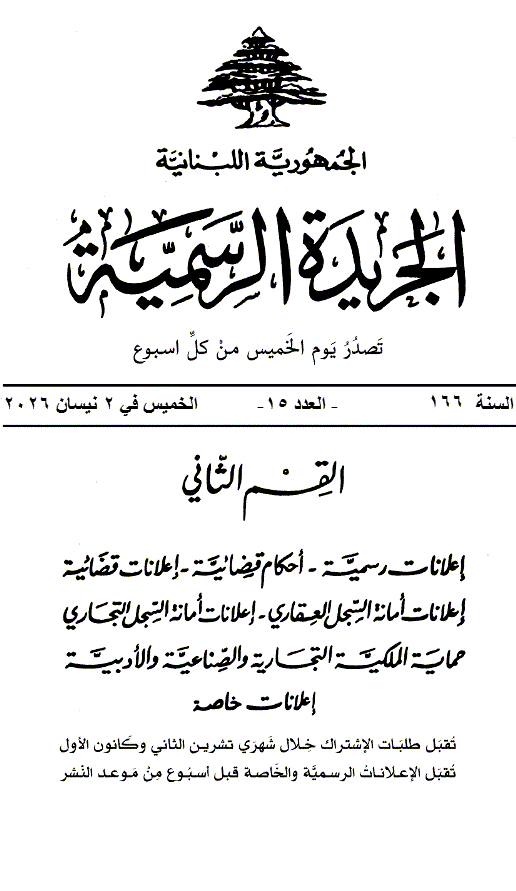 الجمهوريَّة اللبنانيَّة
الجريدة الرسميَّة
تَصدُرُ يَوم الخَميس منْ كلِّ اسبوع
السنة ١٦٦ - العدد ١٥ - الخميس في ٢ نيسان ٢٠٢٦
القِسْم الثّاني
إعلانات رسميَّة - أحكام قضائيَّة - إعلانات قضائية
إعلانات أمانة السّجل العقاري - إعلانات أمانة السّجل التجاري
حماية الملكيَّة التجارية والصّناعيَّة والأدبيَّة
إعلانات خاصة
تُقبَل طلبَات الإشتراك خِلال شَهرَي تشرين الثاني وكَانون الأول
تُقبَل الإعلاناتُ الرسميَّة والخَاصة قبل أسبُوع مِنْ مَوعد النَشر